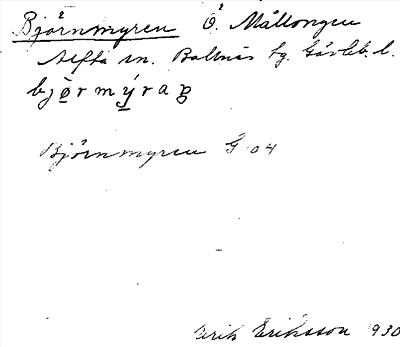 Björnmyren Ö. Mållongen
Alfta sn. Bollnäs tg. Gävleb. l.
Björnmyren G 04
Erik Eriksson 1930